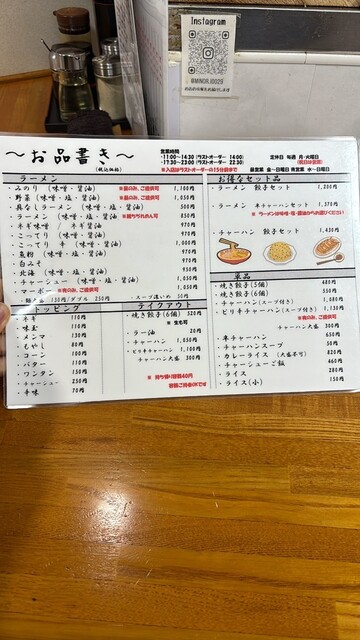 Instagram
@MINORI0029
〜お品書き〜
(税込価格)
営業時間
・11:00〜14:30 (ラストオーダー 14:00)
・17:30〜23:00 (ラストオーダー 22:30)
※入店はラストオーダーの15分前まで
定休日 毎週 月・火曜日
(祝日は営業)
昼営業 金〜日曜日 夜営業 水〜日曜日
ラーメン
・みのり (味噌・醤油) ※昼のみ、ご提供可 1,100円
・野菜 (味噌・塩・醤油) ※昼のみ、ご提供可 1,050円
・具なしラーメン (味噌・塩・醤油) 500円
・ラーメン (味噌・塩・醤油) 850円
・ネギ味噌 / ネギ醤油 970円
・こってり (味噌・塩・醤油) 970円
・こってり 辛 (味噌・塩・醤油) 1,000円
・魚粉 (味噌・塩・醤油) 950円
・白みそ 950円
・北海 (味噌・塩・醤油) 1,050円
・チャーシュー (味噌・塩・醤油) 1,050円
・マーボー ※夜のみ、ご提供可 1,050円
150円/ダブル 250円
・スープ濃いめ 50円
トッピング
・ネギ 110円
・味玉 110円
・メンマ 110円
・もやし 80円
・コーン 100円
・バター 110円
・ワンタン 130円
・チャーシュー 250円
・辛味 70円
テイクアウト
・焼き餃子(6個) 520円
※生も可
・ラー油 20円
・チャーハン 1,050円
・ピリ辛チャーハン 1,100円
チャーハン大盛 300円
※ 持ち帰り容器40円
容器ご持参OKです
お得なセット品
・ラーメン 餃子セット 1,200円
・ラーメン 半チャーハンセット 1,370円
※ ラーメンは味噌・塩・醤油からお選びください
・チャーハン 餃子セット 1,430円
単品
・焼き餃子(5個) 480円
・焼き餃子(6個) 550円
・チャーハン(スープ付き) 1,080円
・ピリ辛チャーハン(スープ付き) 1,130円
※夜のみ、ご提供可
チャーハン大盛 300円
・半チャーハン 650円
・チャーハンスープ 50円
・カレーライス (大盛不可) 820円
・チャーシューご飯 460円
・ライス 280円
・ライス(小) 150円